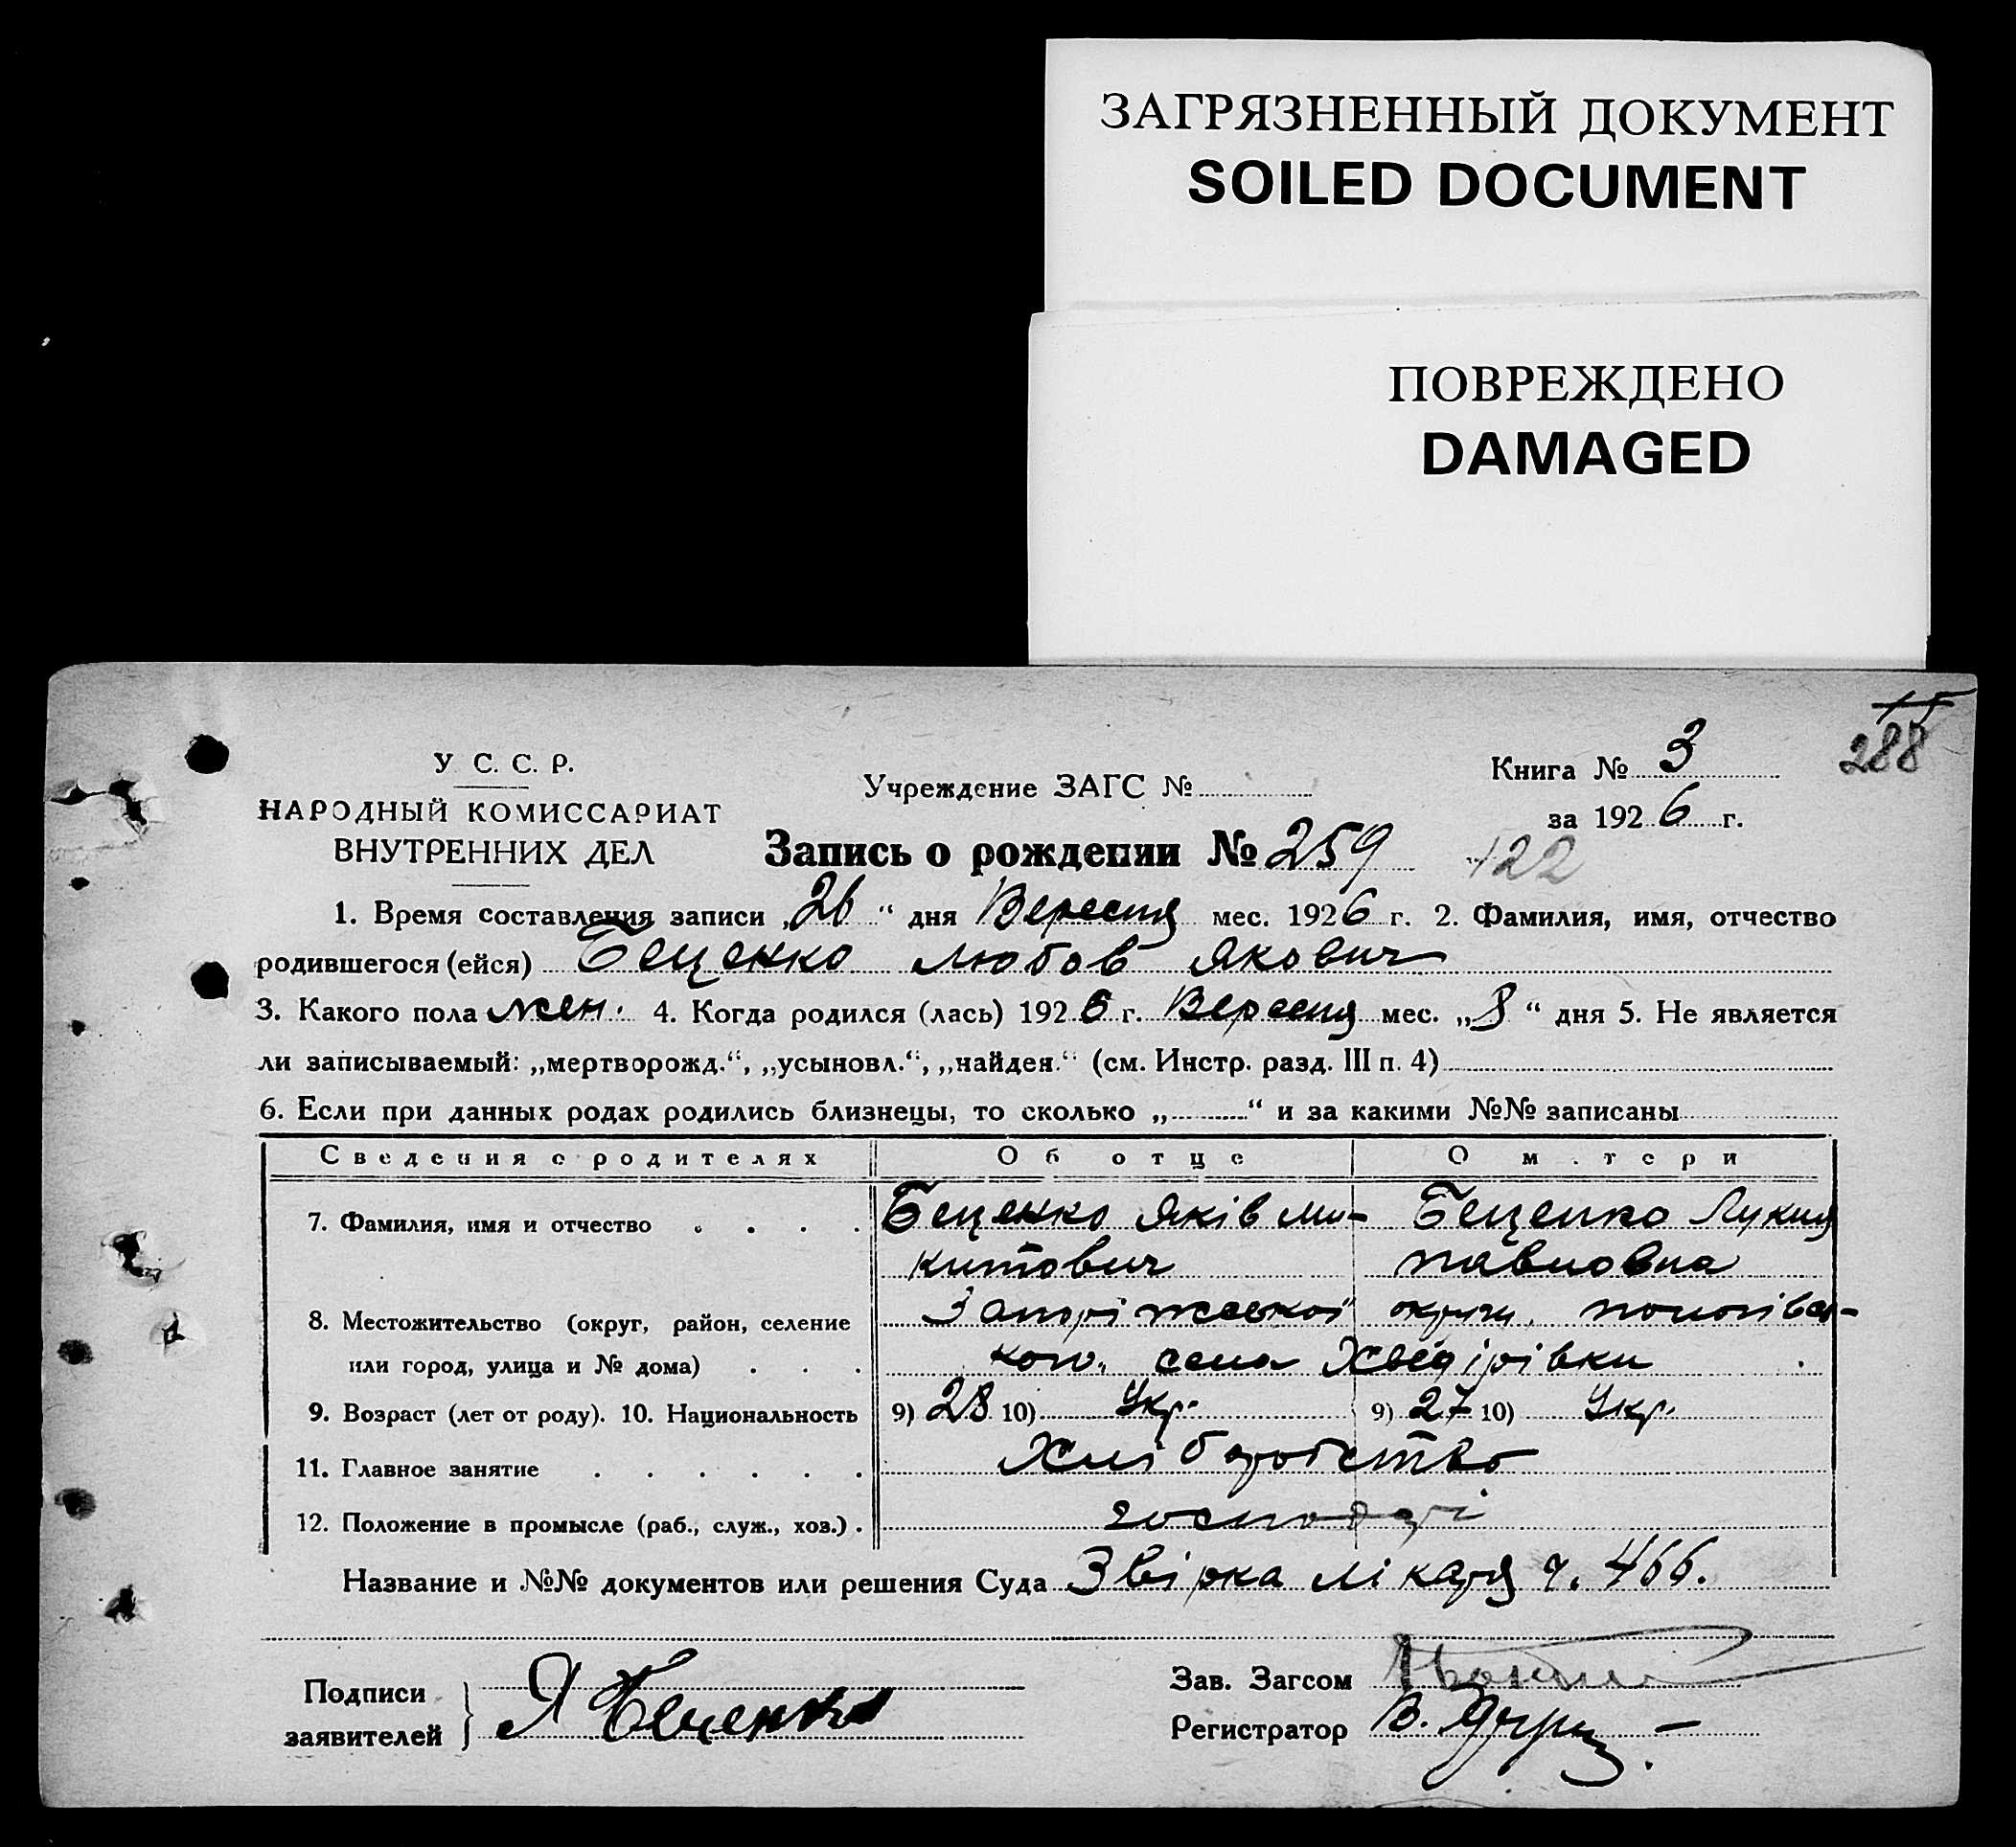 ЗАГРЯЗНЕННЫЙ ДОКУМЕНТ
SOILED DOCUMENT
ПОВРЕЖДЕНО
DAMAGED
288
У. С. С. Р.
НАРОДНЫЙ КОМИССАРИАТ
ВНУТРЕННИХ ДЕЛ
Учреждение ЗАГС №
Книга № 3
за 1926 г.
Запись о рождении № 259
122
1. Время составления записи „26“ дня Вересня мес. 1926 г. 2. Фамилия, имя, отчество
родившегося (ейся) Беценко Любов Якович
3. Какого пола жен. 4. Когда родился (лась) 1926 г. Вересня мес. „8“ дня 5. Не является
ли записываемый: „мертворожд.“, „усыновл.“, „найден.“ (см. Инстр. разд. III п. 4)
6. Если при данных родах родились близнецы, то сколько „ “ и за какими №№ записаны
Сведения о родителях Об отце О матери
7. Фамилия, имя и отчество Беценко Яків Ми- Беценко Лукия
китович Павловна
8. Местожительство (округ, район, селение Запоріжської округи, пологівсь-
или город, улица и № дома) кого, села Хведірівки
9. Возраст (лет от роду). 10. Национальность 9) 28 10) Укр. 9) 27 10) Укр.
11. Главное занятие Хліборобство
12. Положение в промысле (раб., служ., хоз.) господарі
Название и №№ документов или решения Суда Звірка лікаря ч. 466.
Подписи
заявителей Я Беценко
Зав. Загсом
Регистратор В.